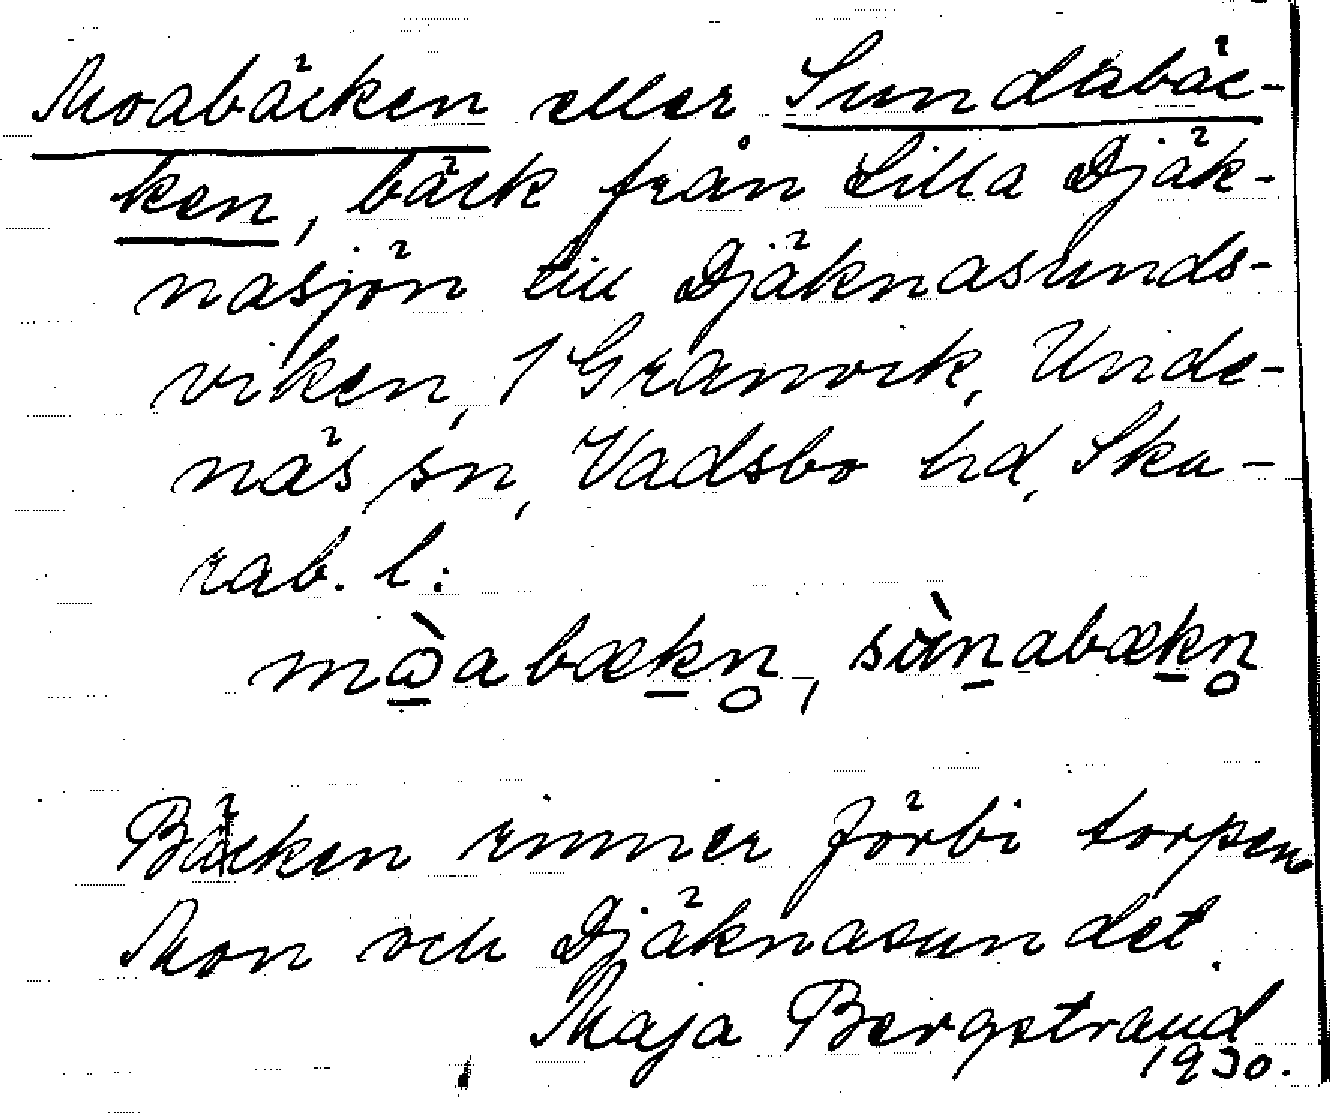 Moabäcken eller Sundabäc-
ken, bäck från Lilla Djäk-
nasjön till Djäknasunds-
viken, 1 Granvik, Unde-
näs sn, Vadsbo hd, Ska-
rab. l:
mὼ̲abæk̲n̥, sùn̲abæk̲n̥
Bäcken rinner förbi torpen
Mon och Djäknasundet.
Maja Bergstrand
1930.